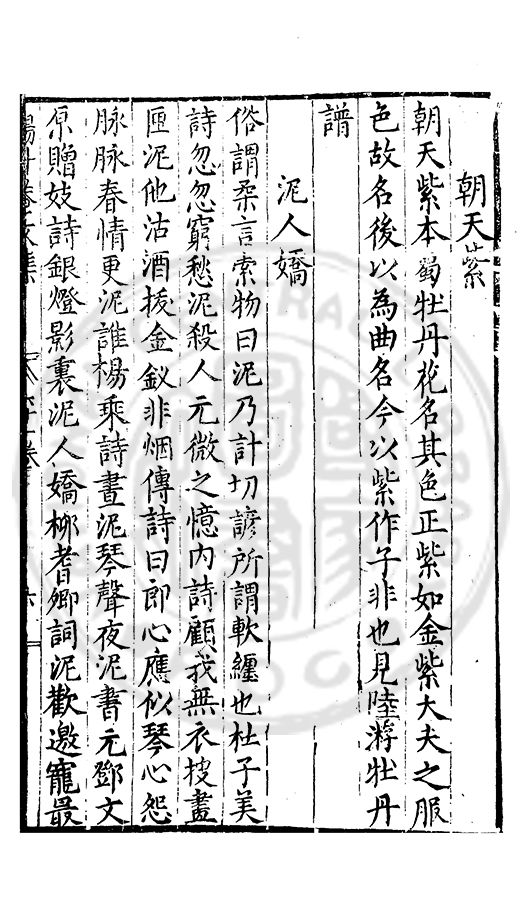 朝天紫
朝天紫本蜀牡丹花名其色正紫如金紫大夫之服
色故名後以為曲名今以紫作子非也見陸游牡丹
譜
泥人嬌
俗謂柔言索物曰泥乃計切諺所謂軟纏也杜子美
詩忽忽窮愁泥殺人元微之憶内詩顧我無衣搜畫
匣泥他沽酒拔金釵非烟傳詩曰郎心應似琴心怨
脉脉春情更泥誰楊乘詩晝泥琴聲夜泥書元鄧文
原贈妓詩銀燈影裏泥人嬌柳耆卿詞泥歡邀寵最